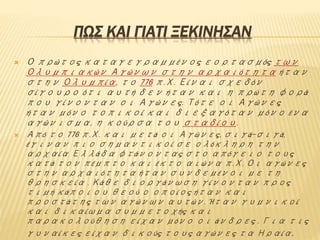 ΠΩΣ ΚΑΙ ΓΙΑΤΙ ΞΕΚΙΝΗΣΑΝ
Ο πρώτος καταγεγραμμένος εορτασμός των
Ολυμπιακών Αγώνων στην αρχαιότητα ήταν
στην Ολυμπία, το 776 π.Χ. Είναι σχεδόν
σίγουρο ότι αυτή δεν ήταν και η πρώτη φορά
που γίνονταν οι Αγώνες. Τότε οι Αγώνες
ήταν μόνο τοπικοί και διεξαγόταν μόνο ένα
αγώνισμα, η κούρσα του σταδίου.
Από το 776 π.Χ. και μετά οι Αγώνες, σιγά-σιγά,
έγιναν πιο σημαντικοί σε ολόκληρη την
αρχαία Ελλάδα φτάνοντας στο απόγειο τους
κατά τον πέμπτο και έκτο αιώνα π.Χ. Οι αγώνες
στην αρχαιότητα ήταν συνδεμένοι με τη
θρησκεία. Κάθε διοργάνωση γίνονταν προς
τιμή κάποιου θεού ο οποίος ήταν και
προστάτης των αγώνων αυτών. Ήταν γυμνικοί
και δικαίωμα συμμετοχής και
παρακολούθηση είχαν μόνο οι άνδρες. Για τις
γυναίκες είχαν δικούς τους αγώνες τα Ηραία.